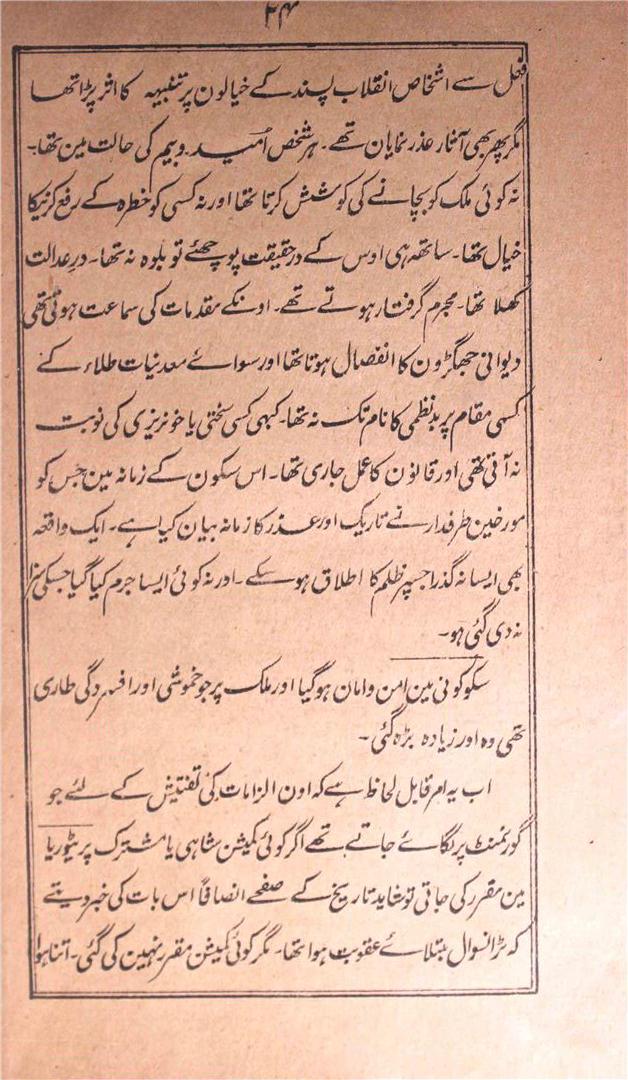 ۲۴
فعل سے اشخاص انقلاب پسند کے خیالون پر تنبیہ کا اثر پڑا تھا
مگر پھر بھی آثار عذر نمایان تھے۔ ہر شخص اُمید و بیم کی حالت مین تھا۔
نہ کوئی ملک کو بچانے کی کوشش کرتا تھا اور نہ کسی کو خطرہ کے رفع کرنیکا
خیال تھا۔ ساتھ ہی اوس کے درحقیقت پوچھئے تو بلوہ نہ تھا۔ درِ عدالت
کھلا تھا۔ مجرم گرفتار ہوتے تھے۔ اونکے مقدمات کی سماعت ہوتی تھی
دیوانی جھگڑون کا انفصال ہوتا تھا اور سوائے معدنیات طلاء کے
کسی مقام پر بدنظمی کا نام تک نہ تھا۔ کبھی کسی سختی یا خونریزی کی نوبت
نہ آتی تھی اور قانون کا عمل جاری تھا۔ اس سکون کے زمانہ مین جس کو
مورخین طرفدار نے تاریک اور عذر کا زمانہ بیان کیا ہے۔ ایک واقعہ
بھی ایسا نہ گذرا جسپر ظلم کا اطلاق ہو سکے۔ اور نہ کوئی ایسا جرم کیا گیا جسکی سزا
نہ دی گئی ہو۔
سکوکونی مین امن و امان ہوگیا اور ملک پر جو خموشی اور افسردگی طاری
تھی وہ اور زیادہ بڑہ گئی۔
اب یہ امر قابل لحاظ ہے کہ اون الزامات کی تفتیش کے لئے جو
گورنمنٹ پر لگائے جاتے تھے اگر کوئی کمیشن شاہی یا مشترک پریٹوریا
مین مقرر کی جاتی تو شاید تاریخ کے صفحے انصافاً اس بات کی خبر دیتے
کہ ٹرانسوال مبتلائے عقوبت ہوا تھا۔ مگر کوئی کمیشن مقرر نہین کی گئی۔ اتنا ہوا